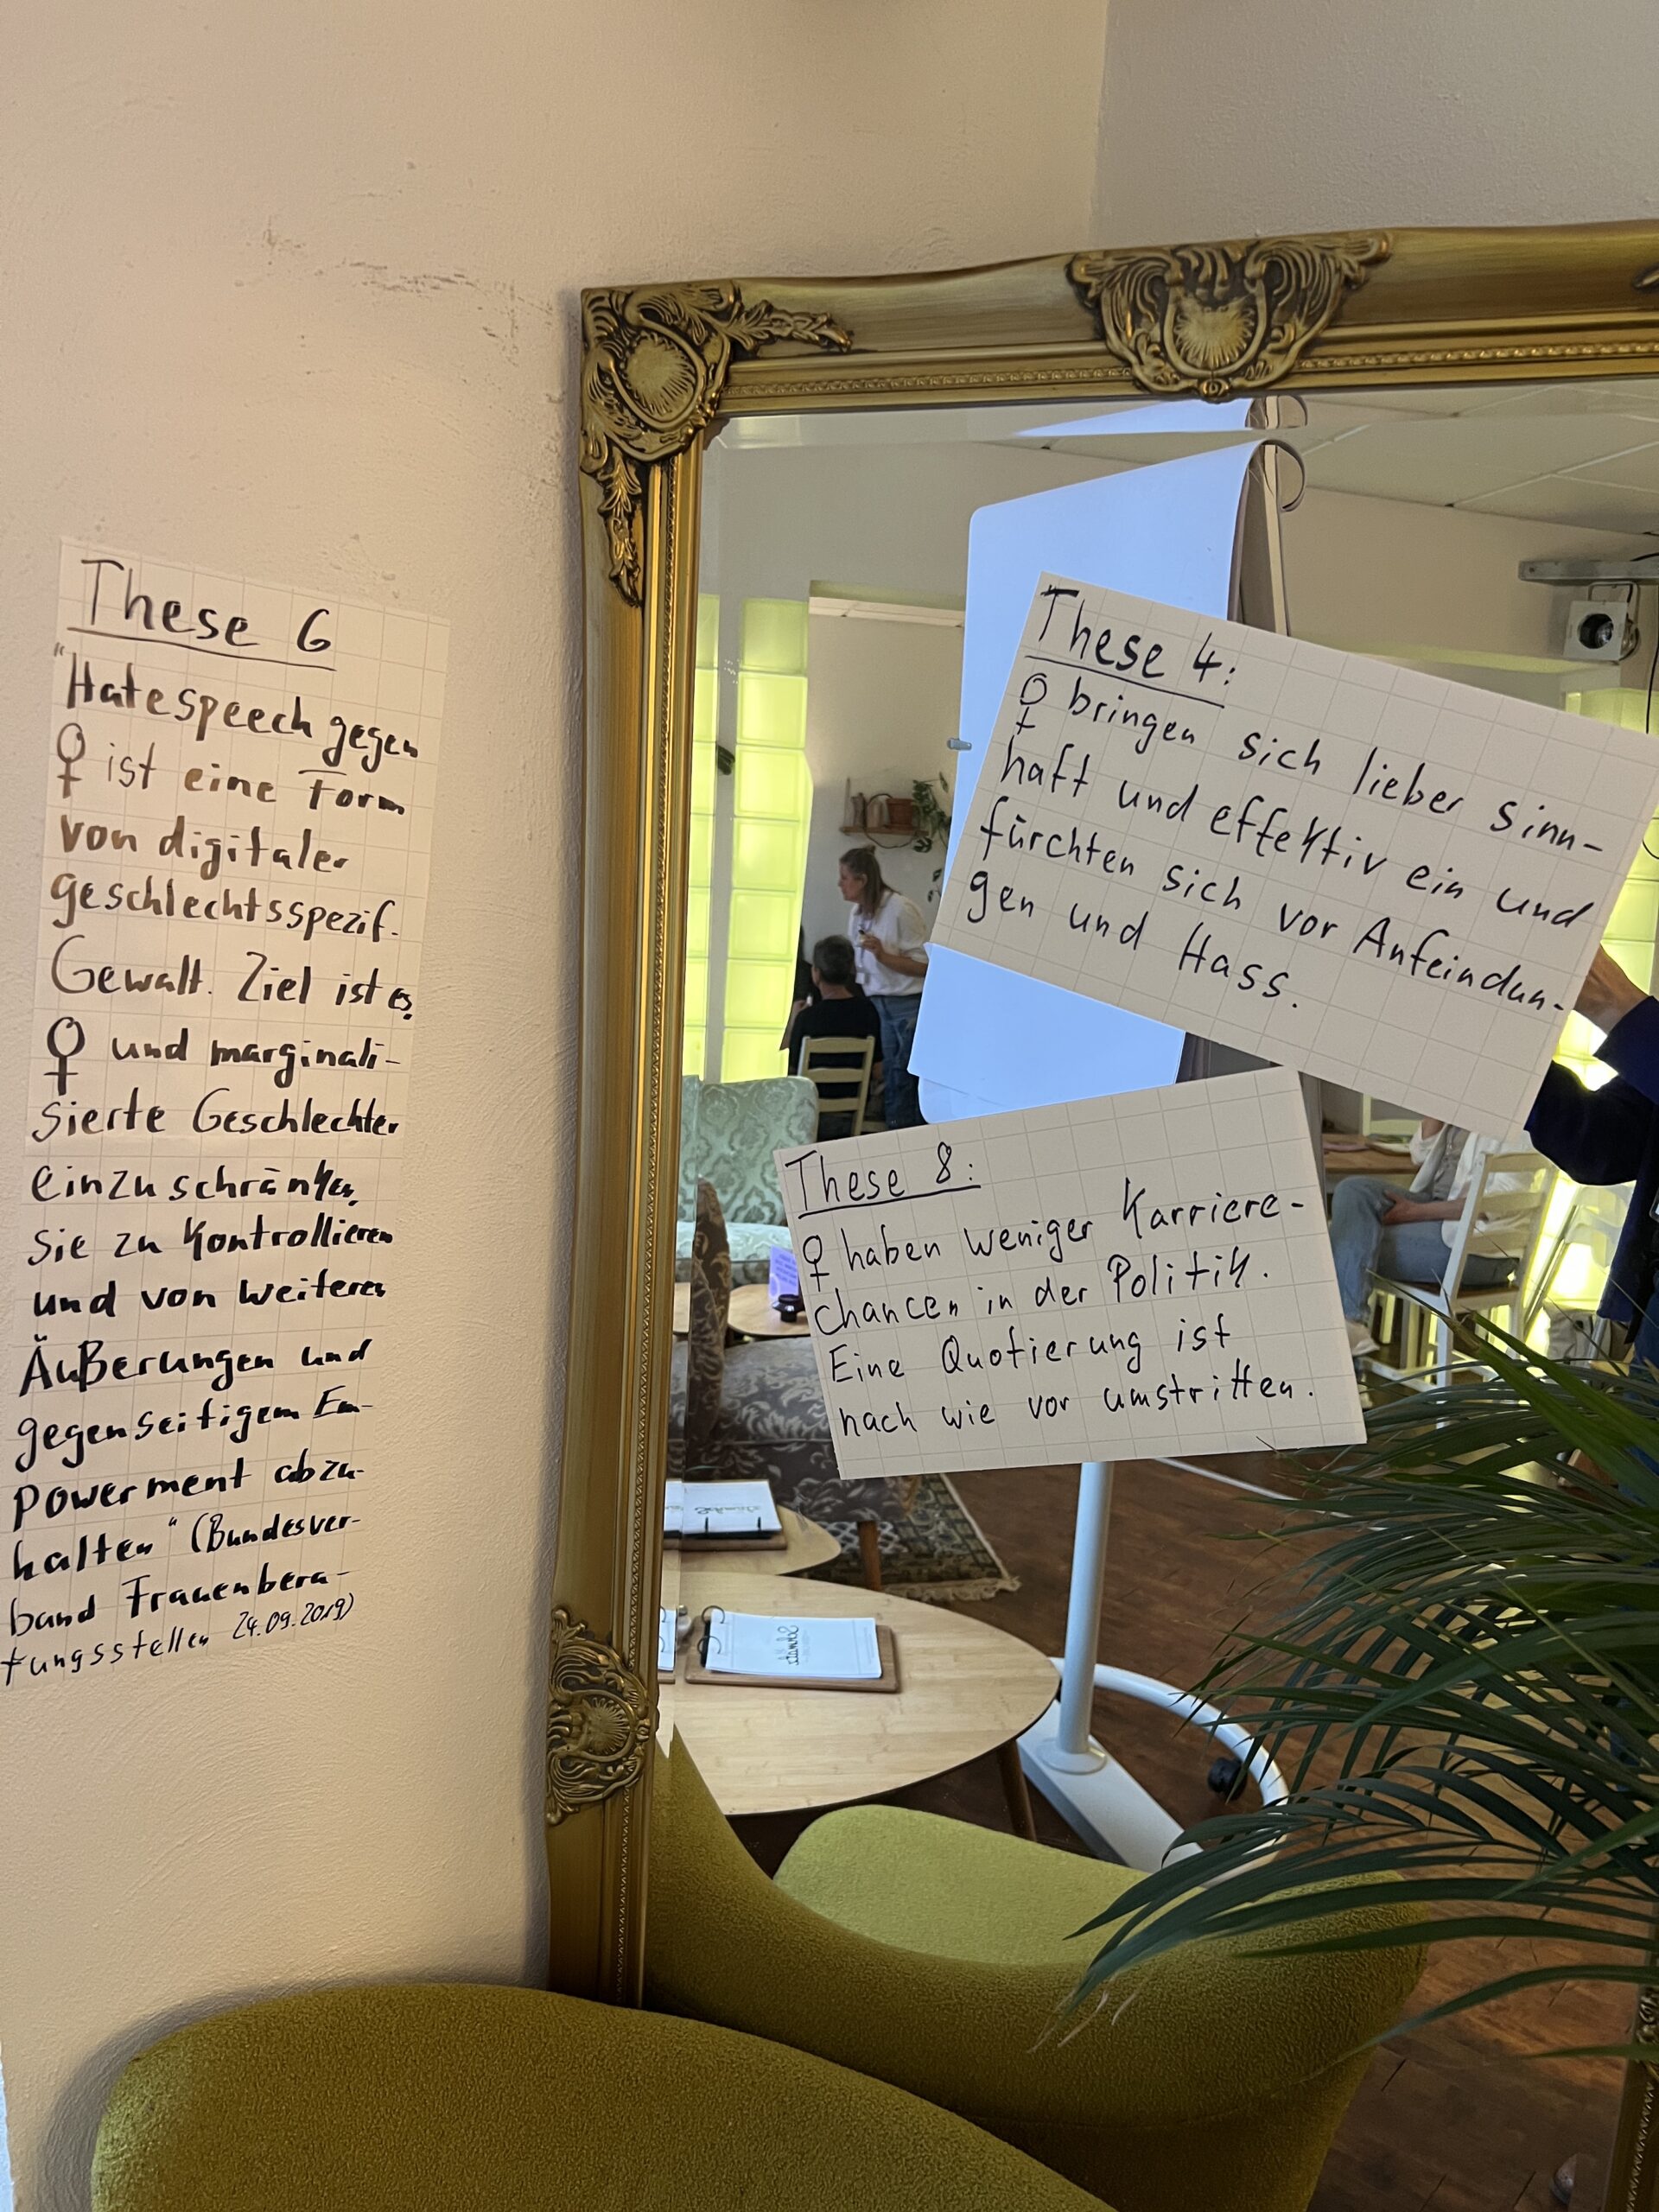 These 6
"Hatespeech gegen
♀ ist eine Form
von digitaler
geschlechtsspezif.
Gewalt. Ziel ist es,
♀ und marginali-
sierte Geschlechter
einzuschränken,
sie zu kontrollieren
und von weiteren
Äußerungen und
gegenseitigem Em-
powerment abzu-
halten" (Bundesver-
band Frauenbera-
tungsstellen 24.09.2019)
These 4:
♀ bringen sich lieber sinn-
haft und effektiv ein und
fürchten sich vor Anfeindun-
gen und Hass.
These 8:
♀ haben weniger Karriere-
chancen in der Politik.
Eine Quotierung ist
nach wie vor umstritten.